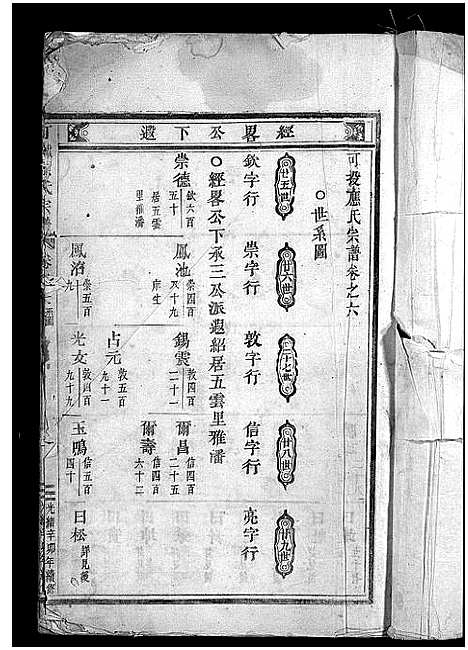 經畧公下遐
可投應氏宗譜卷之六
○世系圖
廿五世
廿六世
二十七世
廿八世
廿九世
欽字行
崇字行
敦字行
信字行
亮字行
○經畧公下承三公派遐紹居五雲里雅潘
崇德
欽六百
五十
居五雲
里雅潘
鳳池
崇四百
双十九
庠生
錫雲
敦四百
二十一
爾昌
信四百
二十五
爾壽
信四百
六十二
占元
敦五百
十一
鳳沼
崇五百
九
光文
敦四百
九十九
玉鳴
信五百
四十
日松
詳見後
光緒辛卯年續修